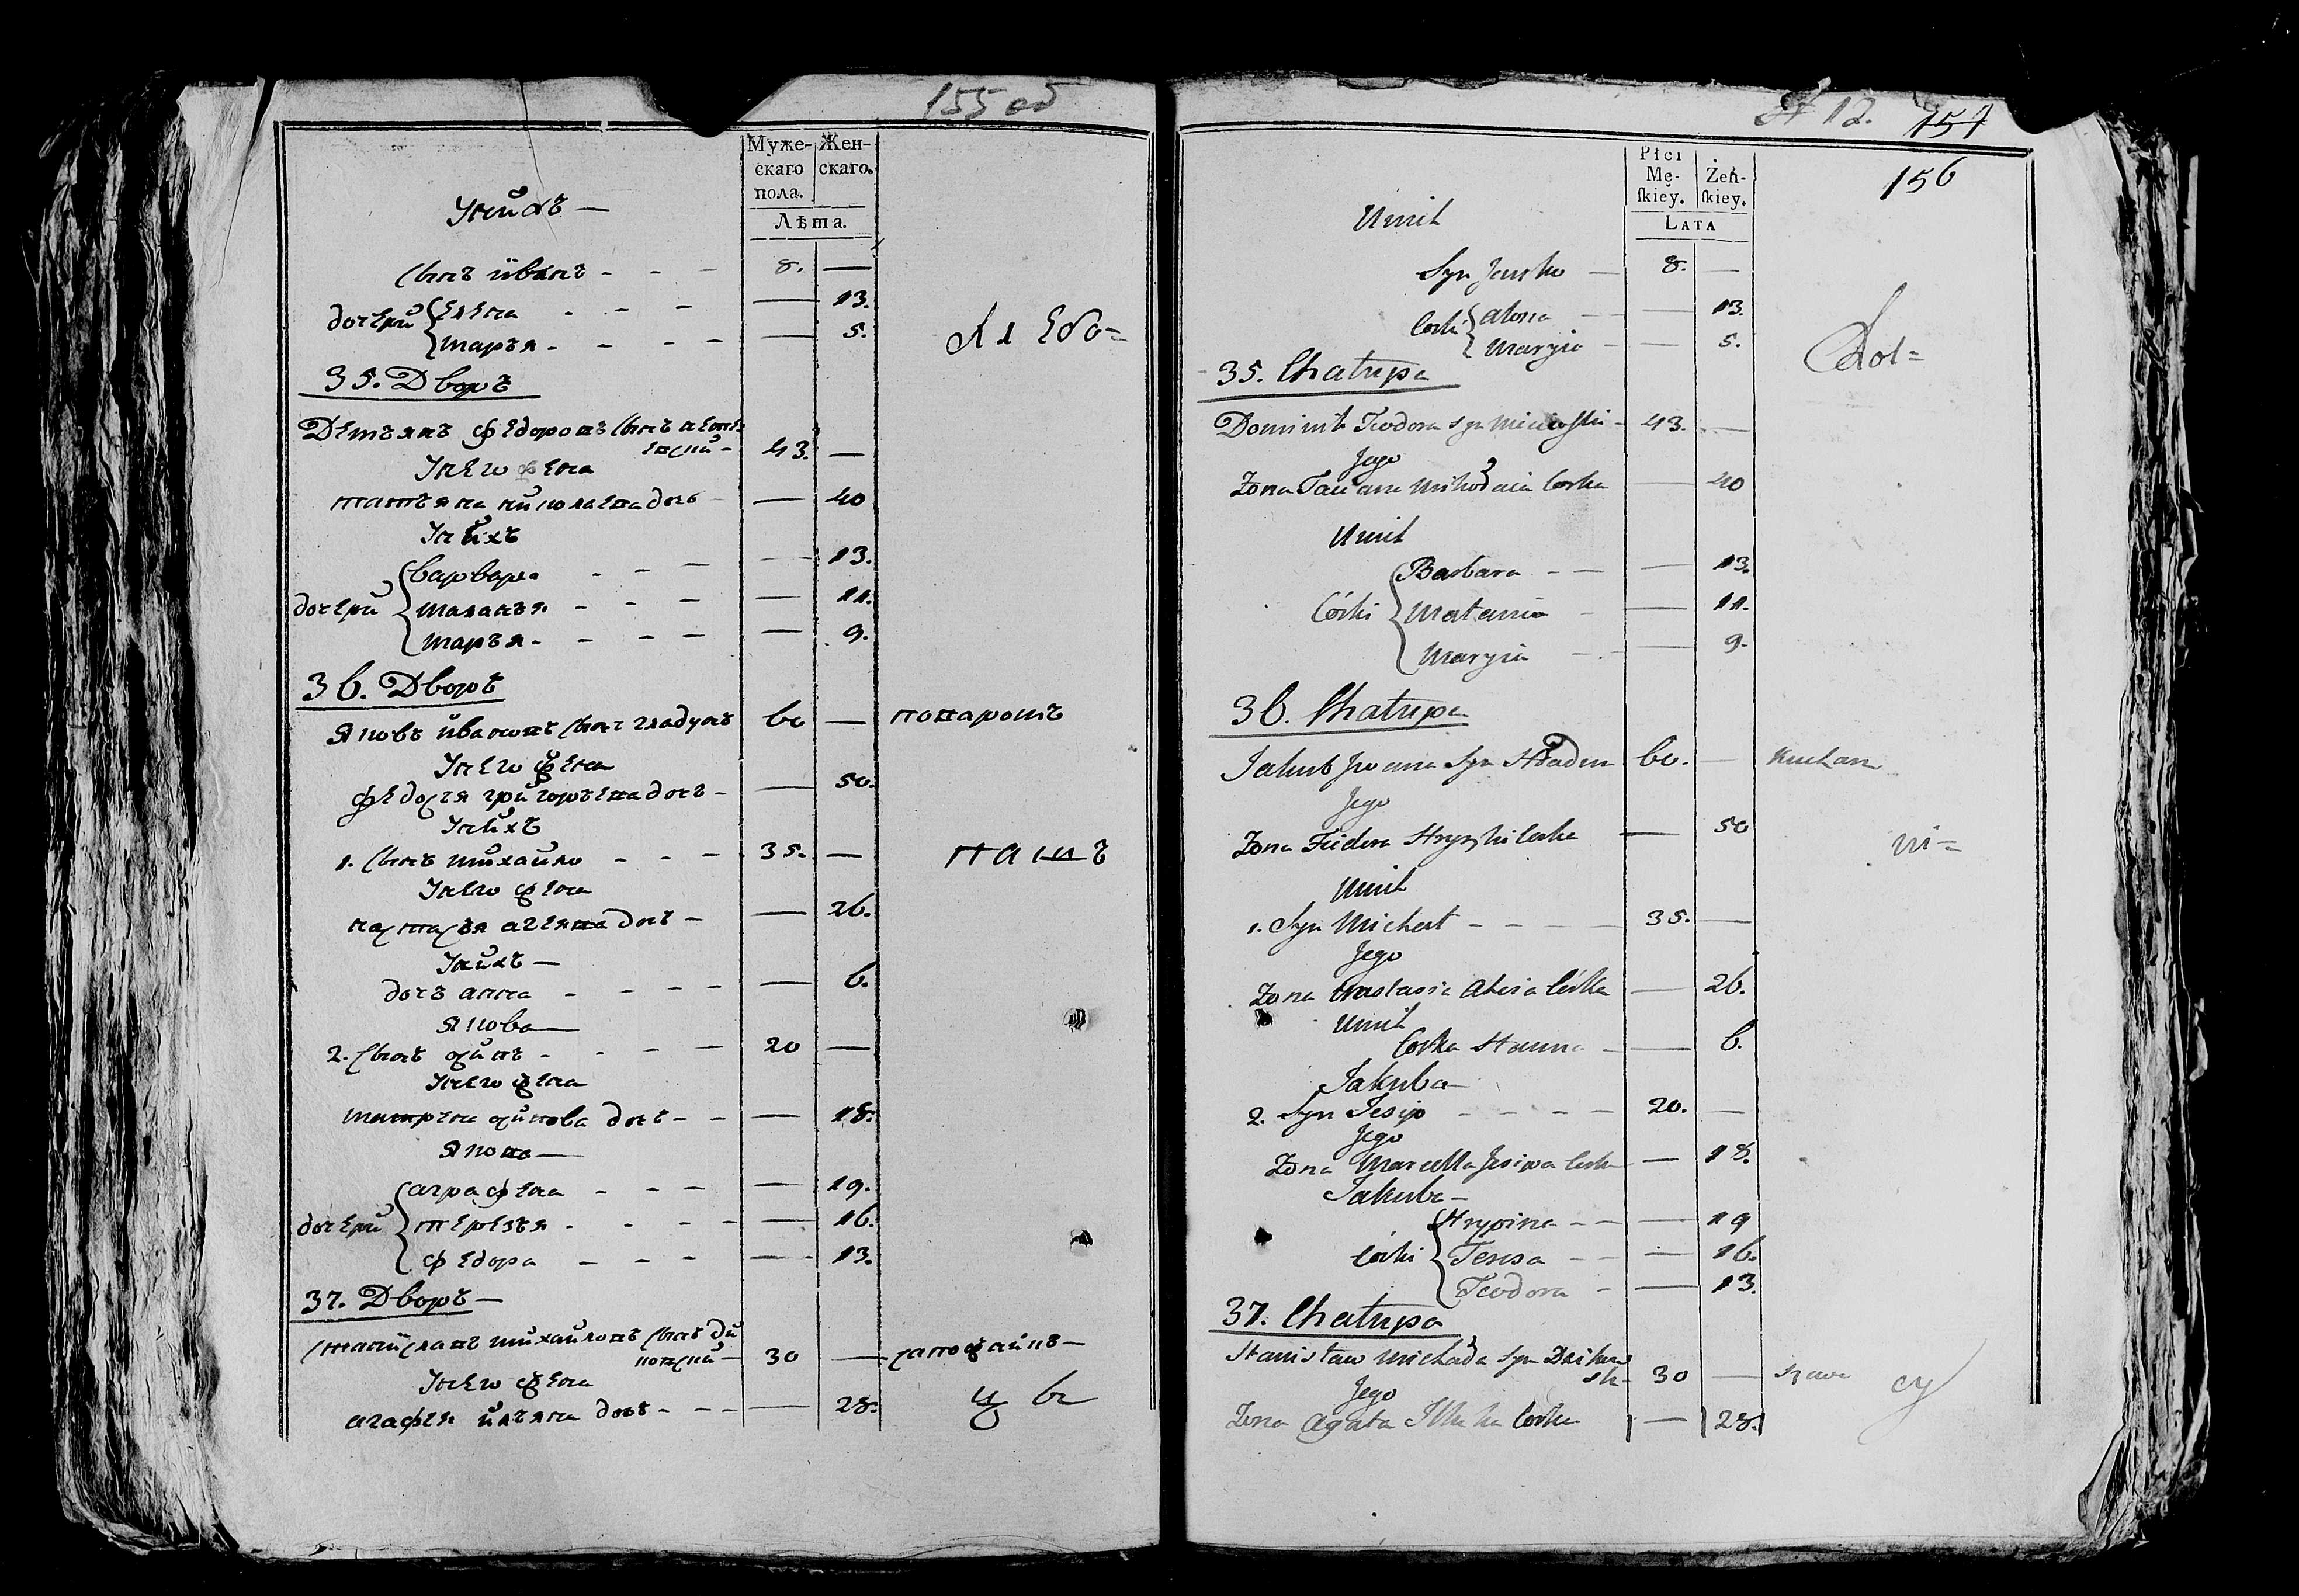 155 об
Муже-
скаго
пола.
Жен-
скаго.
Лѣта.
У нихъ —
Сынъ иванъ - - - 8. —
дочери Елена - - - — 13.
марья - - - - — 5.
хлебо=
35. Дворъ
Демьянъ Федоровъ Сынъ 43. —
У нево жена
татьяна николаева дочь — 40
У нихъ
дочери варвара - - - — 13.
маланья - - - — 11.
марья - - - - — 9.
36. Дворъ
Яковъ ивановъ Сынъ гладунъ 60 — поваромъ
У нево жена
федосья григорьева дочь - — 50.
У нихъ
1. Сынъ михайло - - - 35. — пашъ
У нево жена
настасья агеява дочь - — 26.
У нихъ —
дочь анна - - - - — 6.
Якова —
2. Сынъ осипъ - - - - 20 —
У нево жена
матрена осипова дочь - - — 18.
Якова —
дочери аграфена - - - — 19.
терезья - - - - — 16.
федора - - - - — 13.
37. Дворъ —
Станиславъ михайловъ Сынъ ди
ковский — 30 — сапожникъ —
У нево жена
агафья ильина дочь - - - — 28.
№ 12. 157
156
Płci
Mę-
ſkiey.
Żeń-
ſkiey.
LATA
U nich
Syn Jaśko — 8. —
Corki Alona — — 13.
Maryia — — 5.
35. Chałupa
Dominik Teodora Syn - 43. —
Jego
Żona Taciana Mikołaia Corka — 40
U nich
Córki Barbara - — — 13.
Małania - — 11.
Maryia - — 9.
36. Chałupa
Jakub Jwana Syn Hładun 60. — kuchar
Jego
Żona Fiedora Hryszki Corka — 50
ni=
U nich
1. Syn Michał - - - - 35. —
Jego
Żona Nastasia Aheia Córka — 26.
U nich
Corka Hanna - — 6.
Jakuba —
2. Syn Jesip - - - - 20. —
Jego
Żona Marcella Jesipa Corka — 18.
Jakuba —
Córki Hrypina - - — 19
Teresa - - — 16.
Teodora - — 13.
37. Chałupa
Stanisław Michała Syn Dzikow
sk- 30 — szaw cy
Jego
Żona Agata Corka — 28.